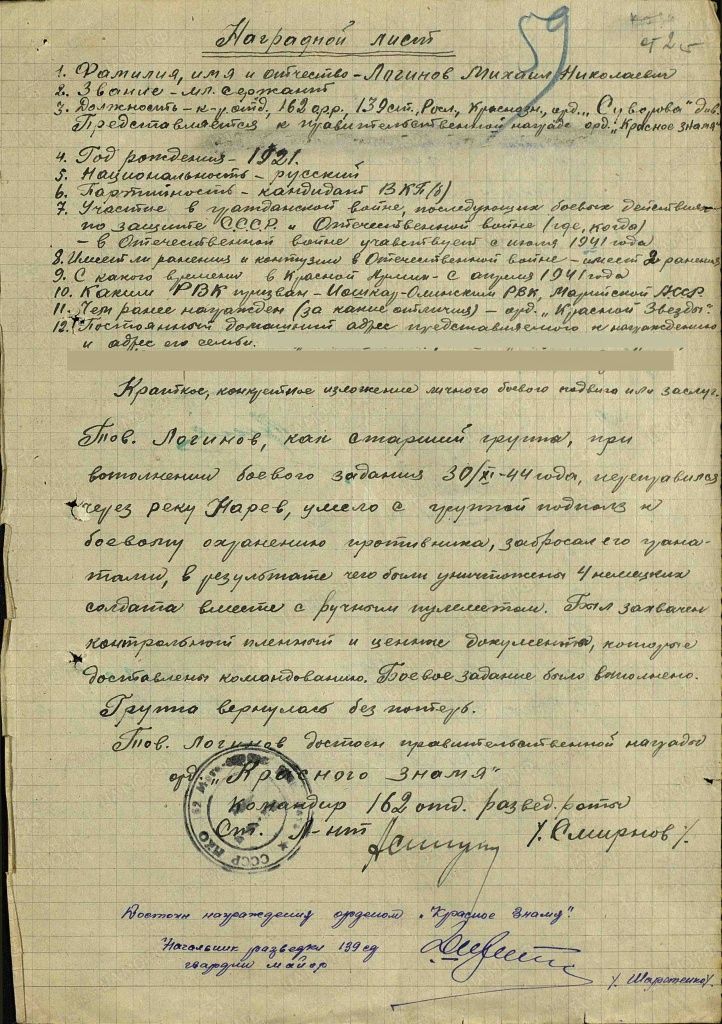 59
Наградной лист
1. Фамилия, имя и отчество - Логинов Михаил Николаевич
2. Звание - мл. сержант
3. Должность - к-р отд, 162 орр, 139 сп., Росл., Краснозн., орд. „Суворова" див.
Представляется к правительственной награде орд. „Красное знамя"
4. Год рождения - 1921.
5. Национальность - русский
6. Партийность - кандидат ВКП(б)
7. Участие в гражданской войне, последующих боевых действиях
по защите С.С.С.Р. и Отечественной войне (где, когда)
- в Отечественной войне участвует с июля 1941 года
8. Имеет ли ранения и контузии в Отечественной войне - имеет 2 ранения
9. С какого времени в Красной Армии - с апреля 1941 года
10. Каким РВК призван - Йошкар-Олинским РВК, Марийской АССР
11. Чем ранее награжден (за какие отличия) - орд. „Красной Звезды".
12. Постоянный домашний адрес представляемого к награждению
и адрес его семьи.
Краткое, конкретное изложение личного боевого подвига или заслуг.
Тов. Логинов, как старший группы, при
выполнении боевого задания 30/XI-44 года, переправился
через реку Нарев, умело с группой подполз к
боевому охранению противника, забросал его грана-
тами, в результате чего были уничтожены 4 немецких
солдата вместе с ручным пулеметом. Был захвачен
контрольный пленный и ценные документы, которые
доставлены командованию. Боевое задание было выполнено.
Группа вернулась без потерь.
Тов. Логинов достоен правительственной награды
орд. „Красного знамя"
Командир 162 отд. развед. роты
Ст. Л-нт /. Смирнов /.
СССР НКО
Достоин награждения орденом „Красное знамя".
Начальник разведки 139 сд
гвардии майор